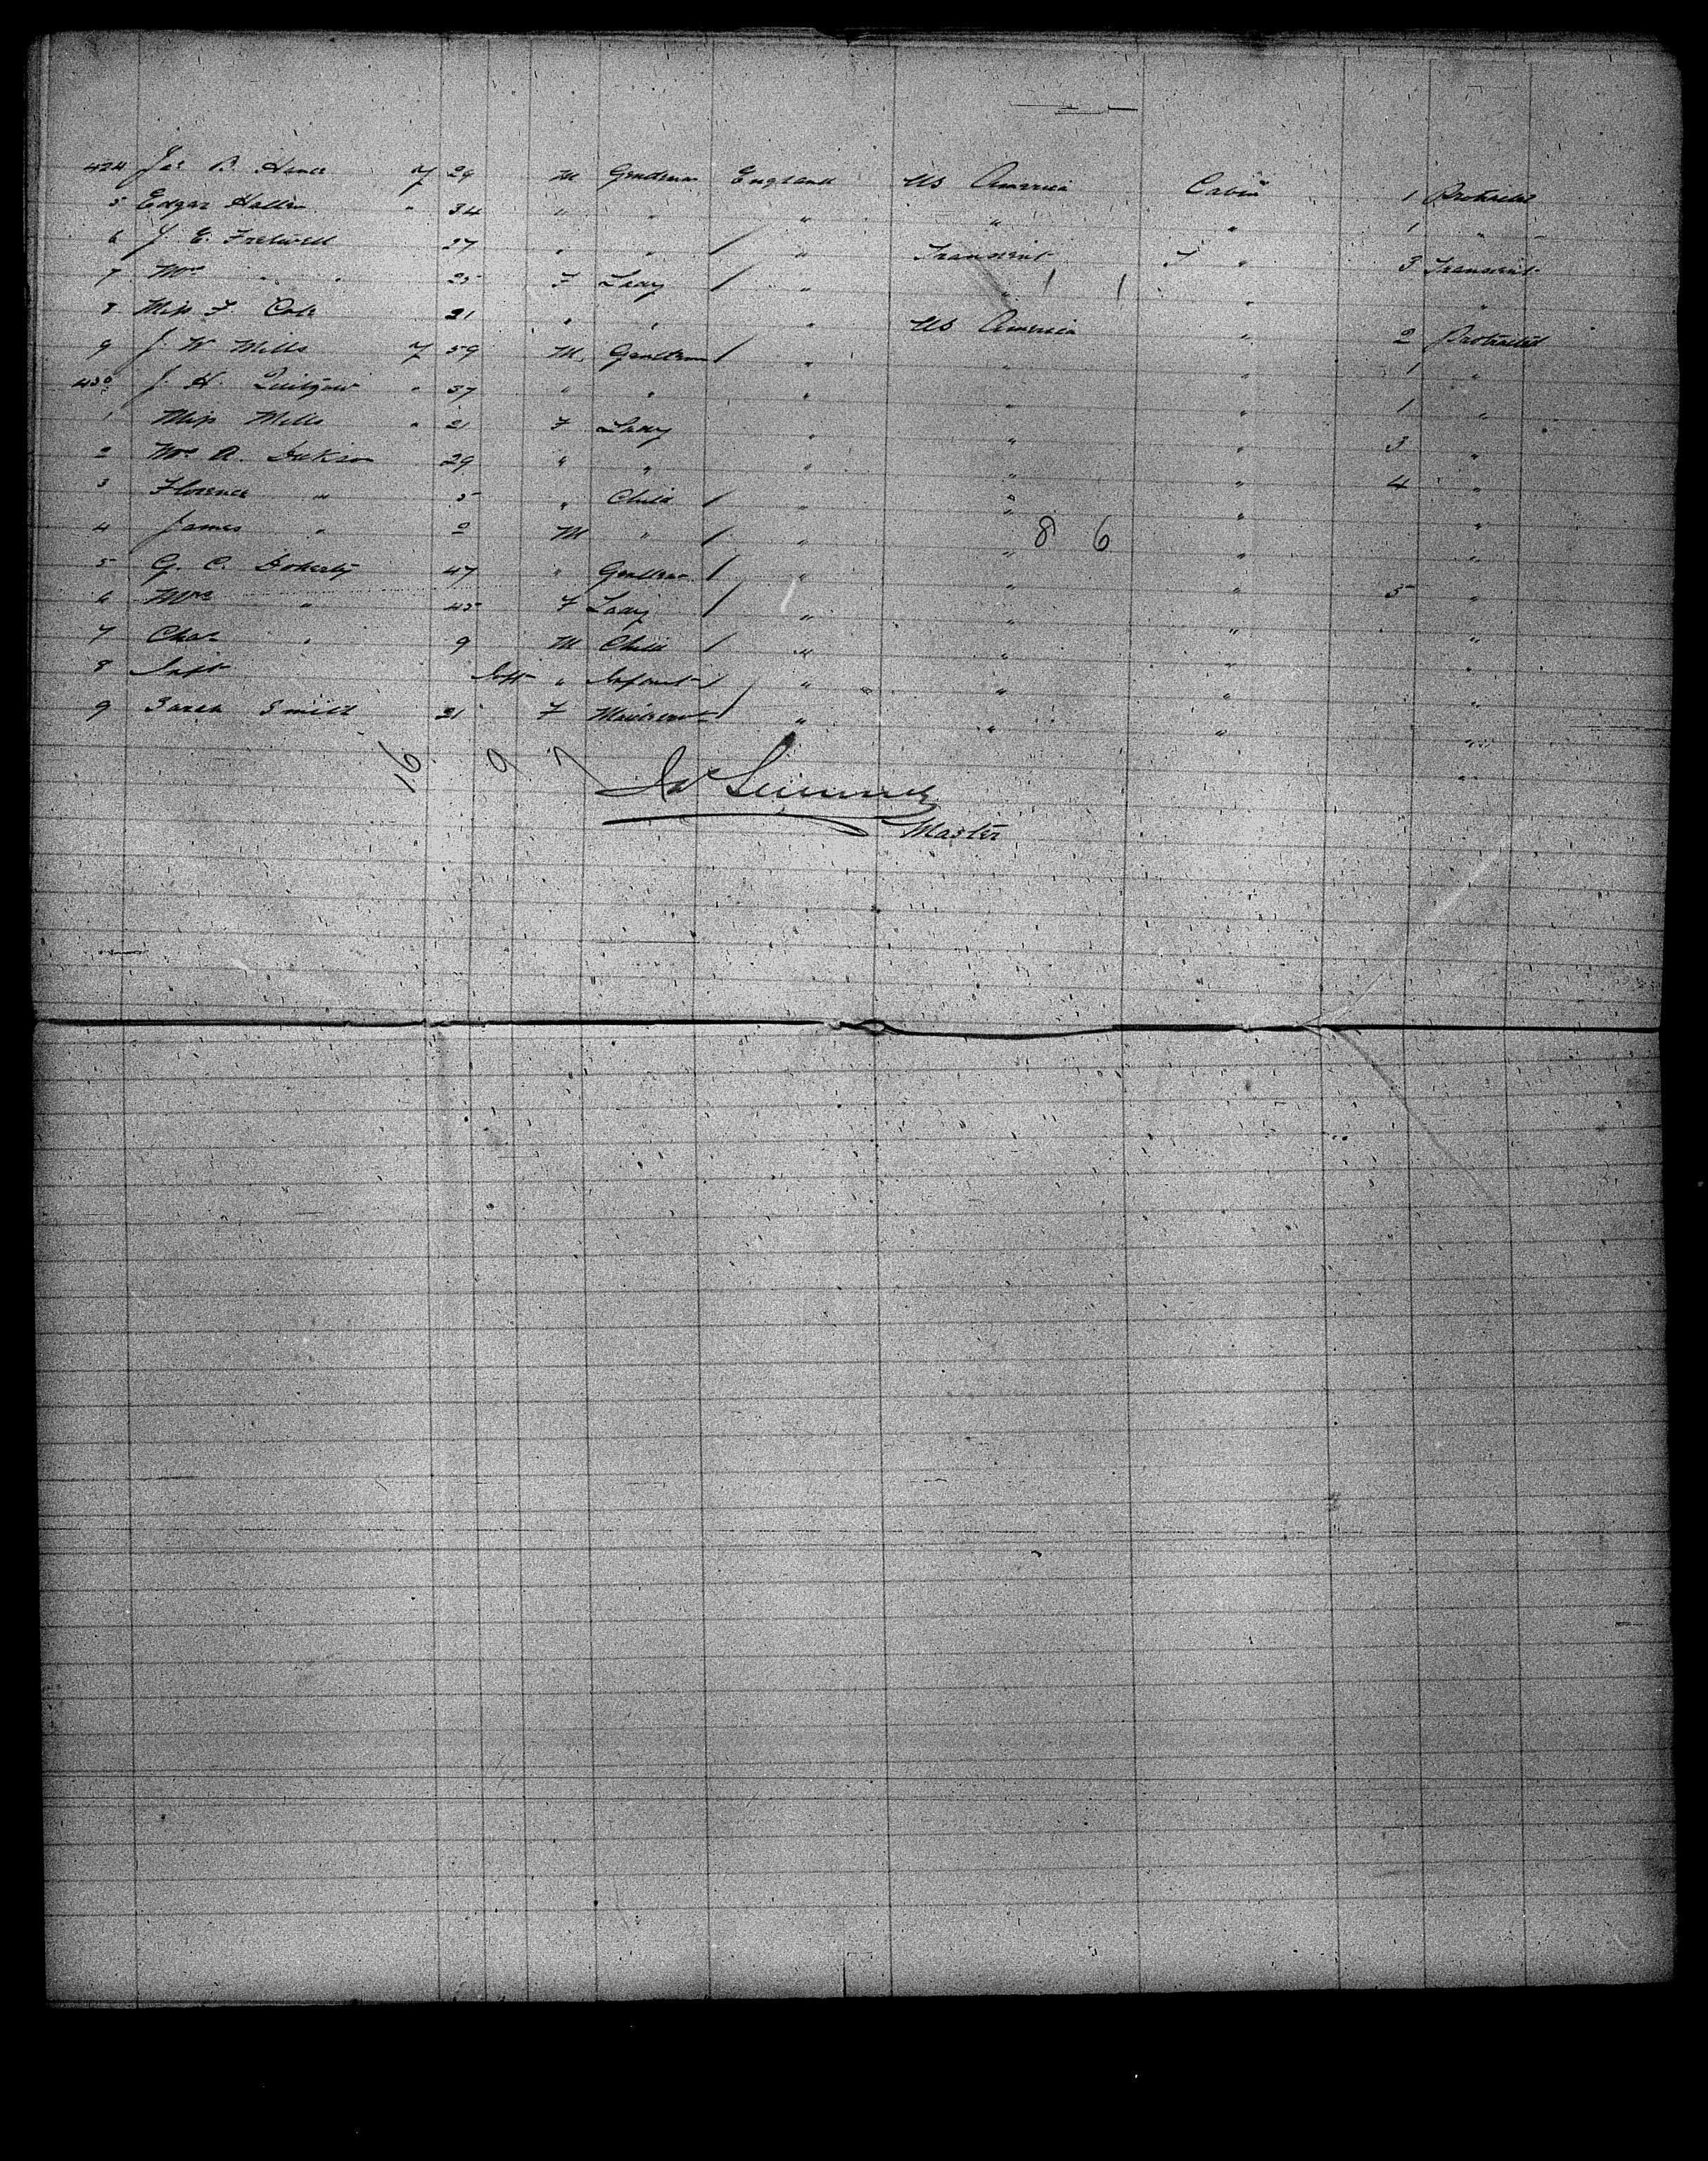 424 Jas B. Hance Y 29 M Gentleman England US America Cabin 1 Protracted
5 Edgar Hallen " 34 " " " " " 1 "
6 J. E. Fretwell 27 " " / " Transient T " 3 Transient
7 Mrs " " 25 F Lady / " " 1 1 " "
8 Miss F. Cole 21 " " " US America " 2 Protracted
9 J. W. Mills Y 59 M Gentlem / " " " 1 "
430 J. H. " 37 " " " " " 1 "
1 Miss Mills " 21 F Lady " " " 3 "
2 Mrs A. 29 " " " " " 4 "
3 Florence " 5 " Child / " " " "
4 James " 2 M " / " " 8 6 " "
5 G. C. Doherty 47 " Gentlem / " " " 5 "
6 Mrs " 45 F Lady / " " " "
7 Chas " 9 M Child / " " " "
8 Inft Inft " Infant / " " " "
9 Sarah Smith 21 F / " " " "
16 9 7
Master